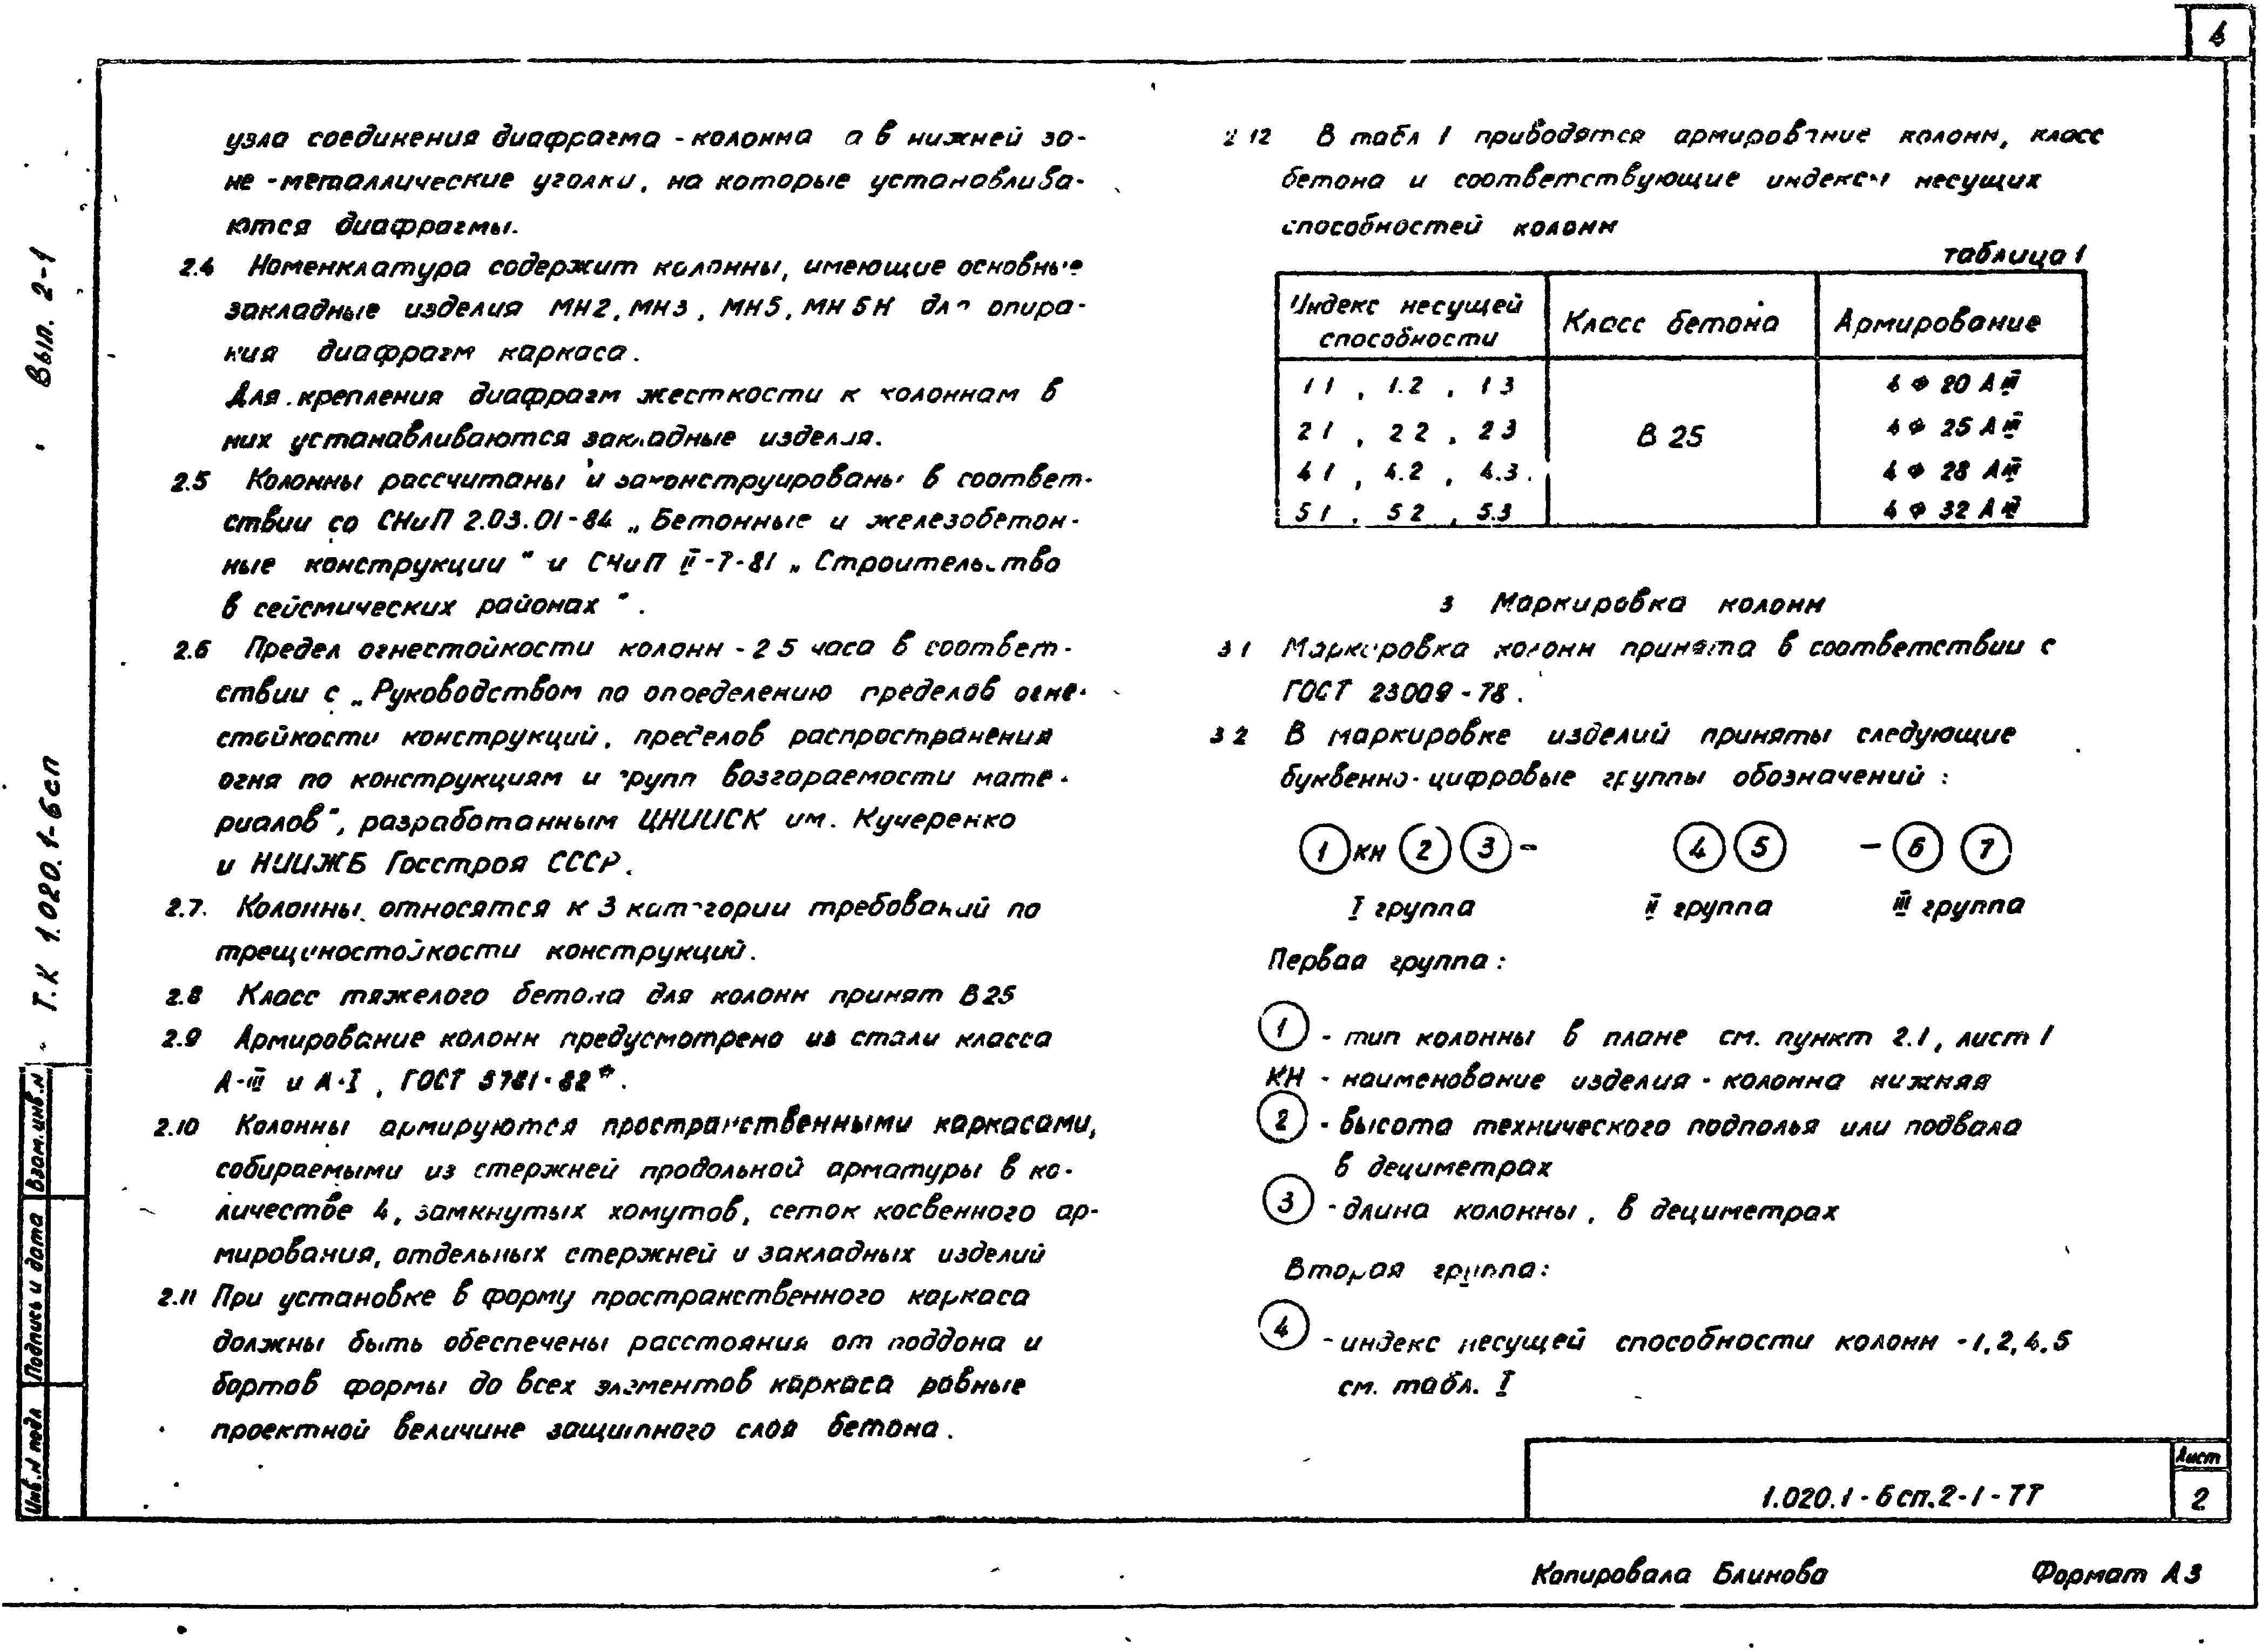 4
узла соединения диафрагма - колонна а в нижней зо-
не - металлические уголки, на которые устанавлива-
ются диафрагмы.
2.4 Номенклатура содержит колонны, имеющие основные
закладные изделия МН2, МН3, МН5, МН5Н для опира-
ния диафрагм каркаса.
Для крепления диафрагм жесткости к колоннам в
них устанавливаются закладные изделия.
2.5 Колонны рассчитаны и законструированы в соответ-
ствии со СНиП 2.03.01-84 „Бетонные и железобетон-
ные конструкции" и СНиП II-7-81 „Строительство
в сейсмических районах".
2.6 Предел огнестойкости колонн - 2 5 часа в соответ-
ствии с „Руководством по определению пределов огне-
стойкости конструкций, пределов распространения
огня по конструкциям и групп возгораемости мате-
риалов", разработанным ЦНИИСК им. Кучеренко
и НИИЖБ Госстроя СССР.
2.7. Колонны относятся к 3 категории требований по
трещиностойкости конструкций.
2.8 Класс тяжелого бетона для колонн принят В25
2.9 Армирование колонн предусмотрено из стали класса
А-III и А-I, ГОСТ 5781-82*.
2.10 Колонны армируются пространственными каркасами,
собираемыми из стержней продольной арматуры в ко-
личестве 4, замкнутых хомутов, сеток косвенного ар-
мирования, отдельных стержней и закладных изделий
2.11 При установке в форму пространственного каркаса
должны быть обеспечены расстояния от поддона и
бортов формы до всех элементов каркаса равные
проектной величине защитного слоя бетона.
2 12 В табл 1 приводятся армирование колонн, класс
бетона и соответствующие индексы несущих
способностей колонн
таблица 1
Индекс несущей способности | Класс бетона | Армирование
1 1 , 1.2 , 1 3 | В 25 | 4 Ф 20 А III
2 1 , 2 2 , 2 3 | 4 Ф 25 А III
4 1 , 4.2 , 4.3. | 4 Ф 28 А III
5 1 , 5 2 , 5.3 | 4 Ф 32 А III
3 Маркировка колонн
3 1 Маркировка колонн принята в соответствии с
ГОСТ 23009-78.
3 2 В маркировке изделий приняты следующие
буквенно-цифровые группы обозначений:
1 КН 2 3 - 4 5 - 6 7
I группа II группа III группа
Первая группа:
1 - тип колонны в плане см. пункт 2.1, лист 1
КН - наименование изделия - колонна нижняя
2 - высота технического подполья или подвала
в дециметрах
3 - длина колонны, в дециметрах
Вторая группа:
4 - индекс несущей способности колонн - 1, 2, 4, 5
см. табл. I
1.020.1-6сп.2-1-ТТ
Лист
2
Копировала Блинова Формат А3
Т.К 1.020.1-6сп Вып. 2-1
Инв.N подл Подпись и дата Взам.инв.N